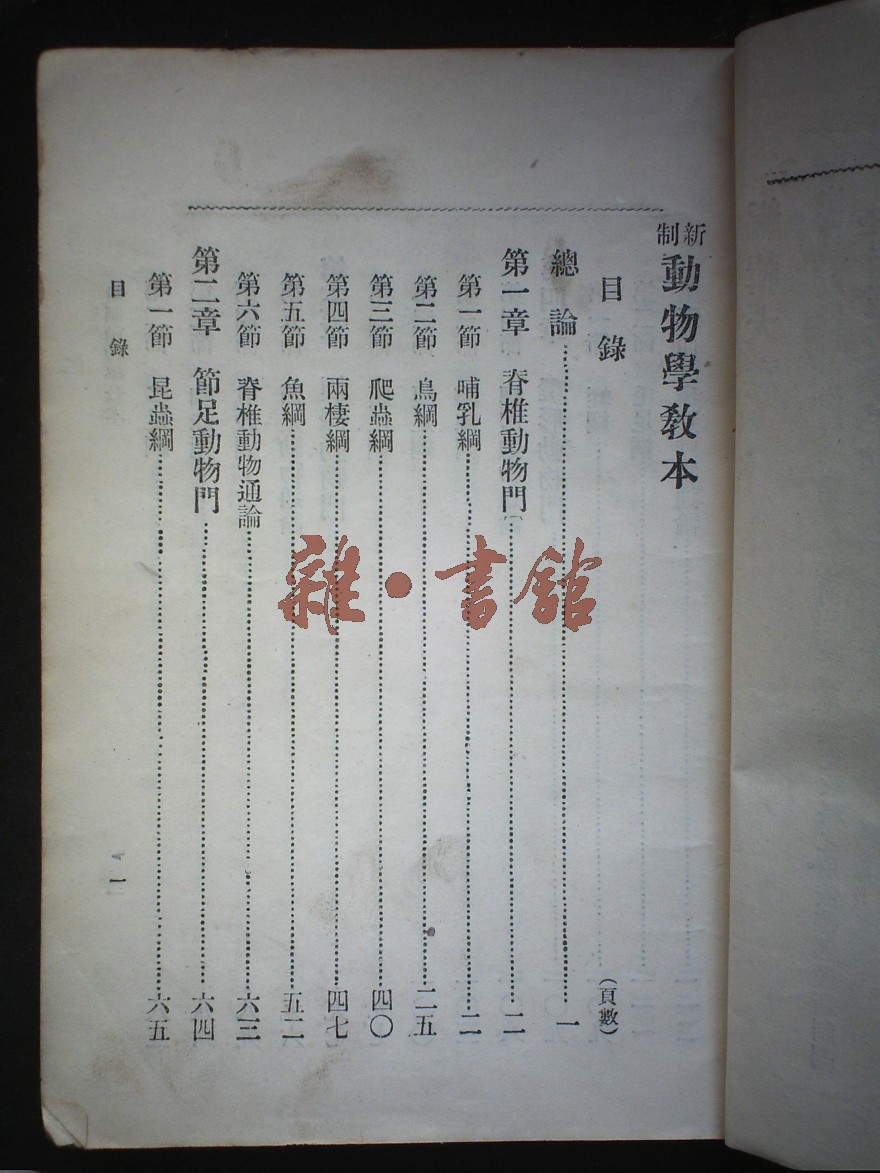 新制動物學教本
目錄 (頁數)
總論 一
第一章 脊椎動物門 二
第一節 哺乳綱 二
第二節 鳥綱 二五
第三節 爬蟲綱 四〇
第四節 兩棲綱 四七
第五節 魚綱 五二
第六節 脊椎動物通論 六三
第二章 節足動物門 六四
第一節 昆蟲綱 六五
目錄 一
雜·書館